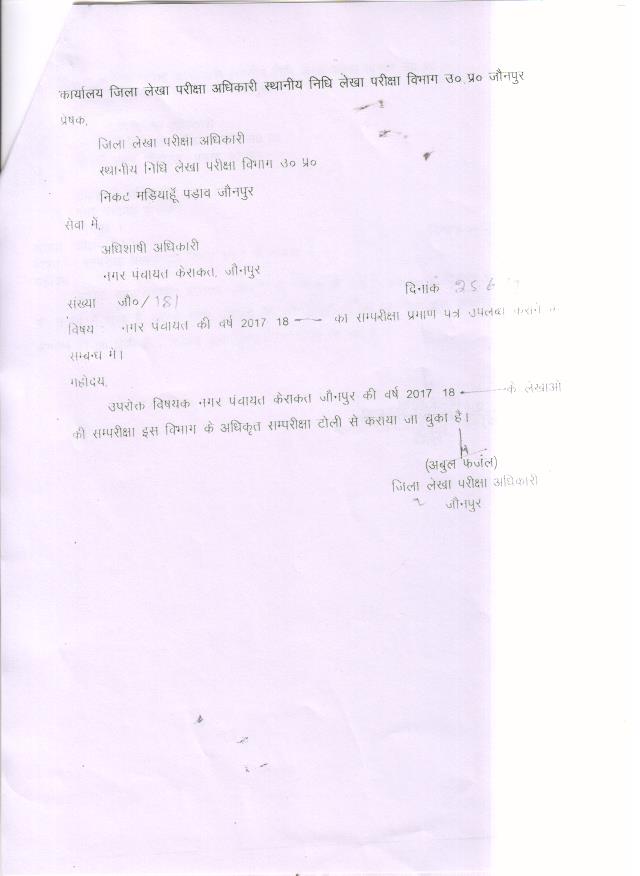 कार्यालय जिला लेखा परीक्षा अधिकारी स्थानीय निधि लेखा परीक्षा विभाग उ० प्र० जौनपुर
प्रेषक,
जिला लेखा परीक्षा अधिकारी
स्थानीय निधि लेखा परीक्षा विभाग उ० प्र०
निकट मडियाहूँ पडाव जौनपुर
सेवा में,
अधिशाषी अधिकारी
नगर पंचायत केराकत, जौनपुर
दिनांक 25 6
संख्या जौ०/181
विषय नगर पंचायत की वर्ष 2017 18 —— का सम्परीक्षा प्रमाण पत्र उपलब्ध कराने
सम्बन्ध में।
महोदय,
उपरोक्त विषयक नगर पंचायत केराकत जौनपुर की वर्ष 2017 18 —— के लेखाओं
की सम्परीक्षा इस विभाग के अधिकृत सम्परीक्षा टोली से कराया जा चुका है।
(अबुल फजल)
जिला लेखा परीक्षा अधिकारी
जौनपुर